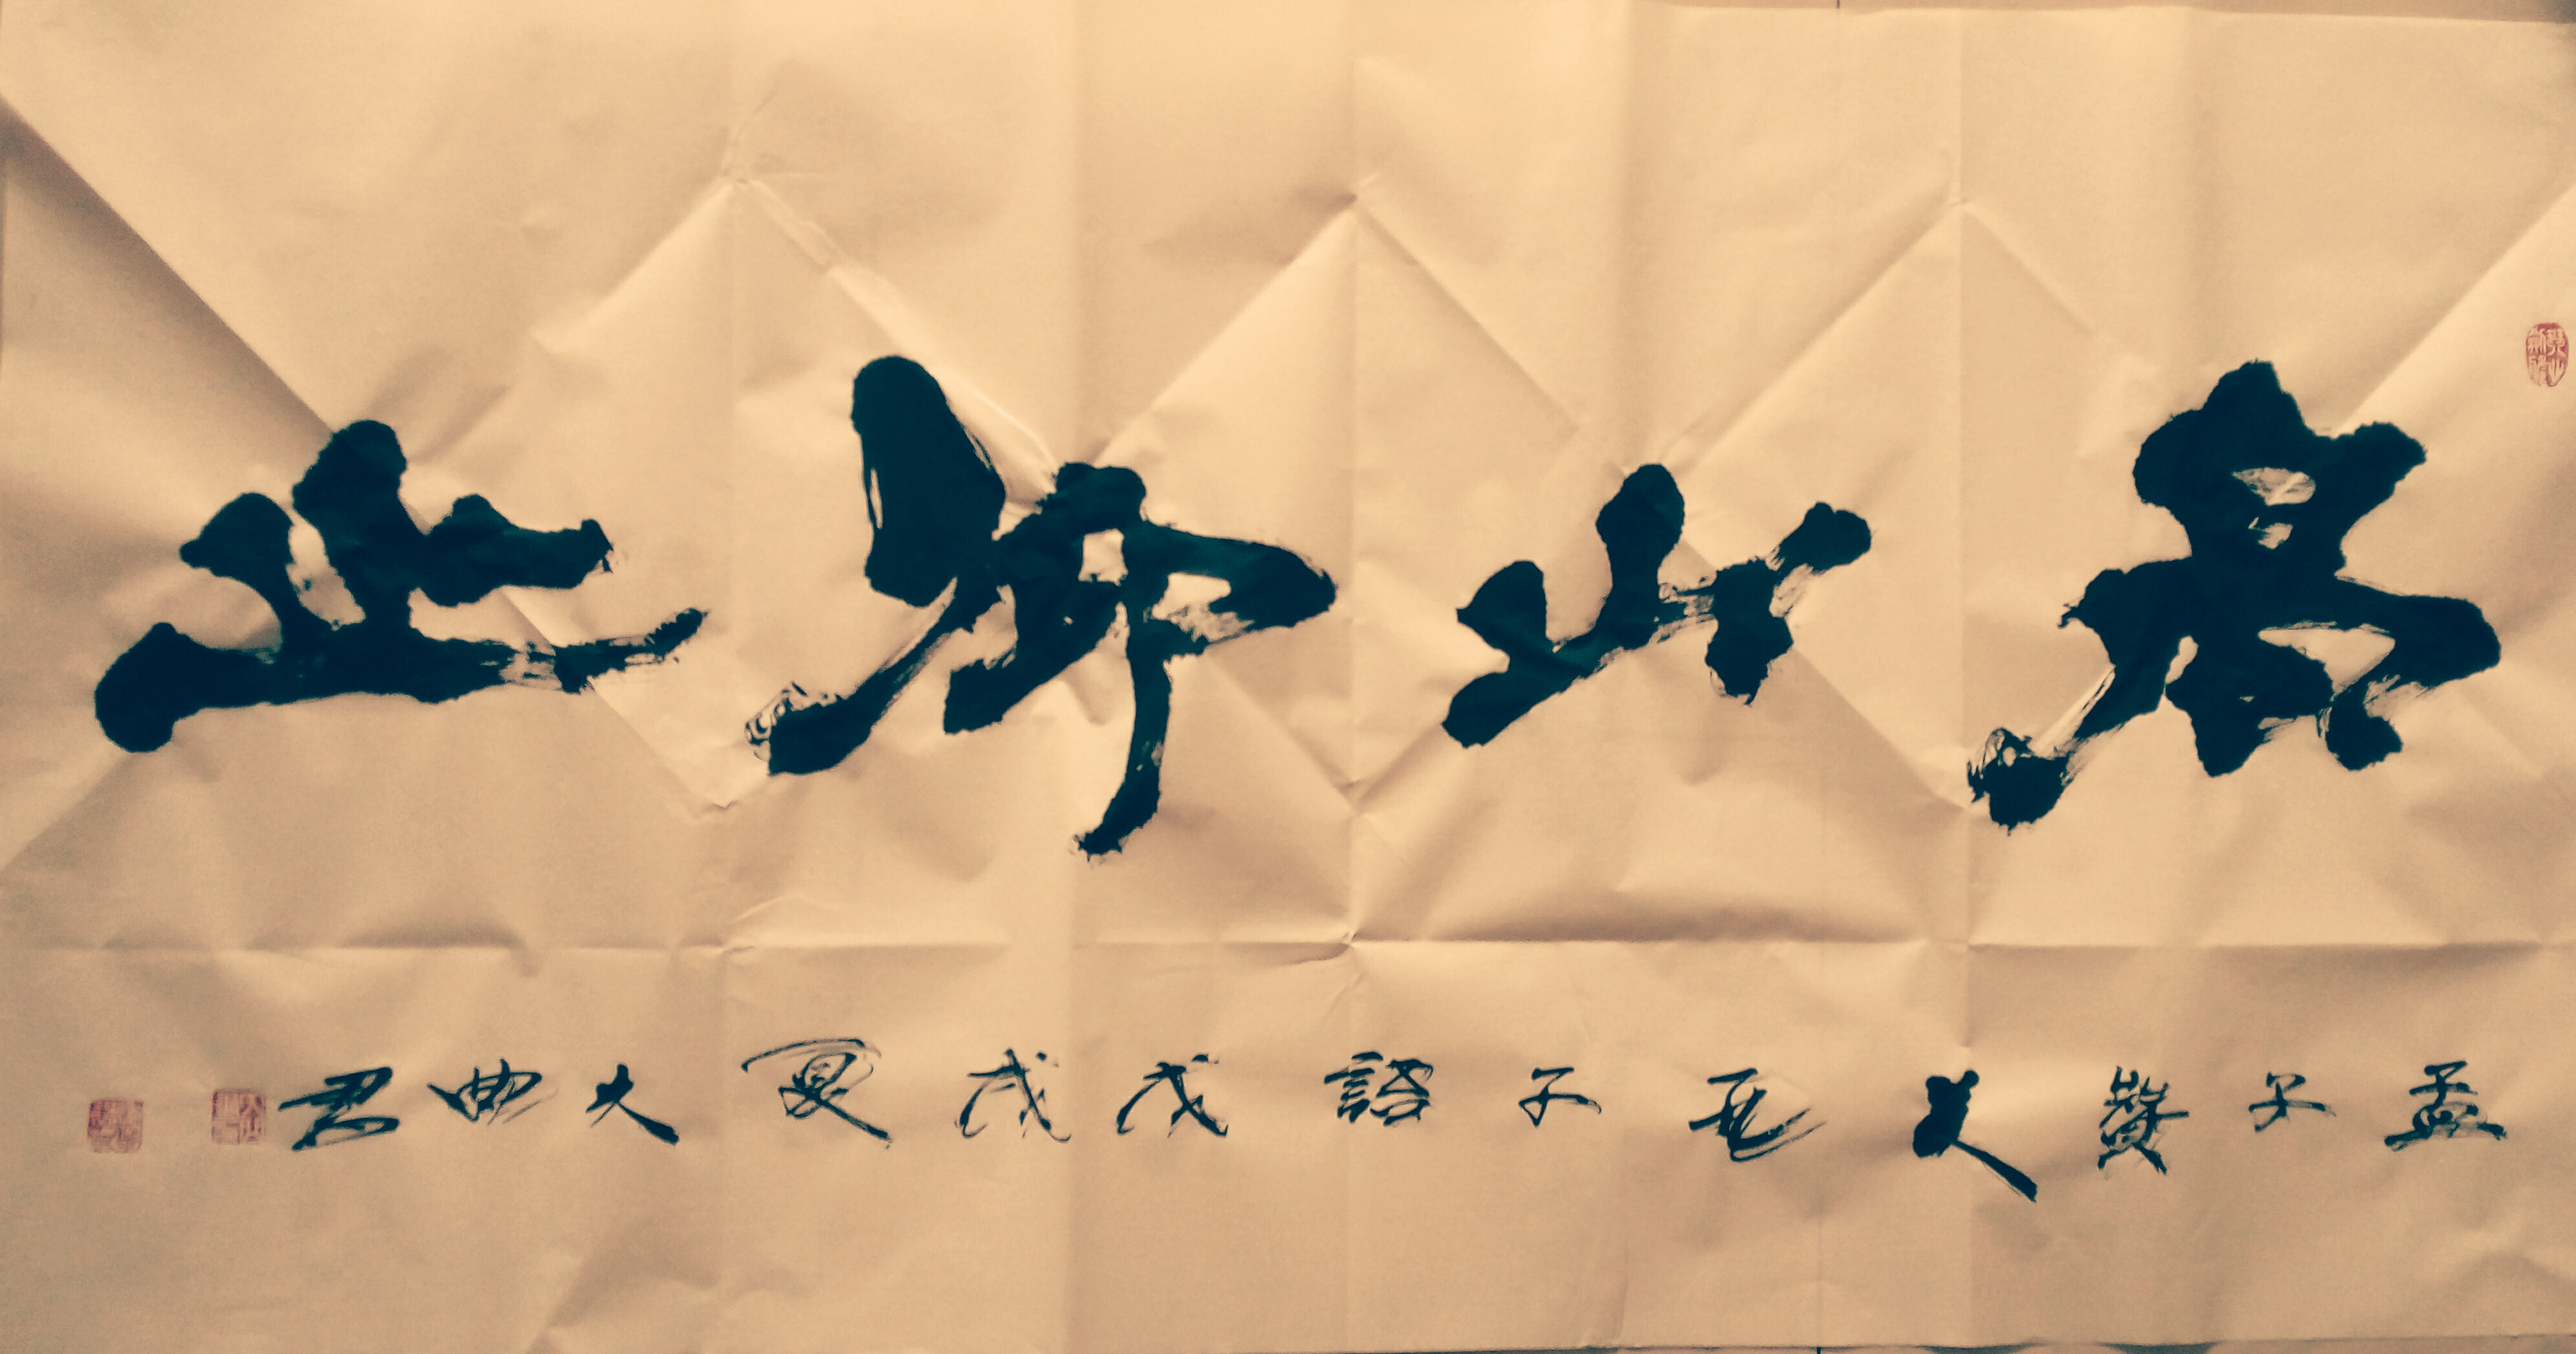 高山仰止
孟子赞美孔子語戊戌夏大曲君